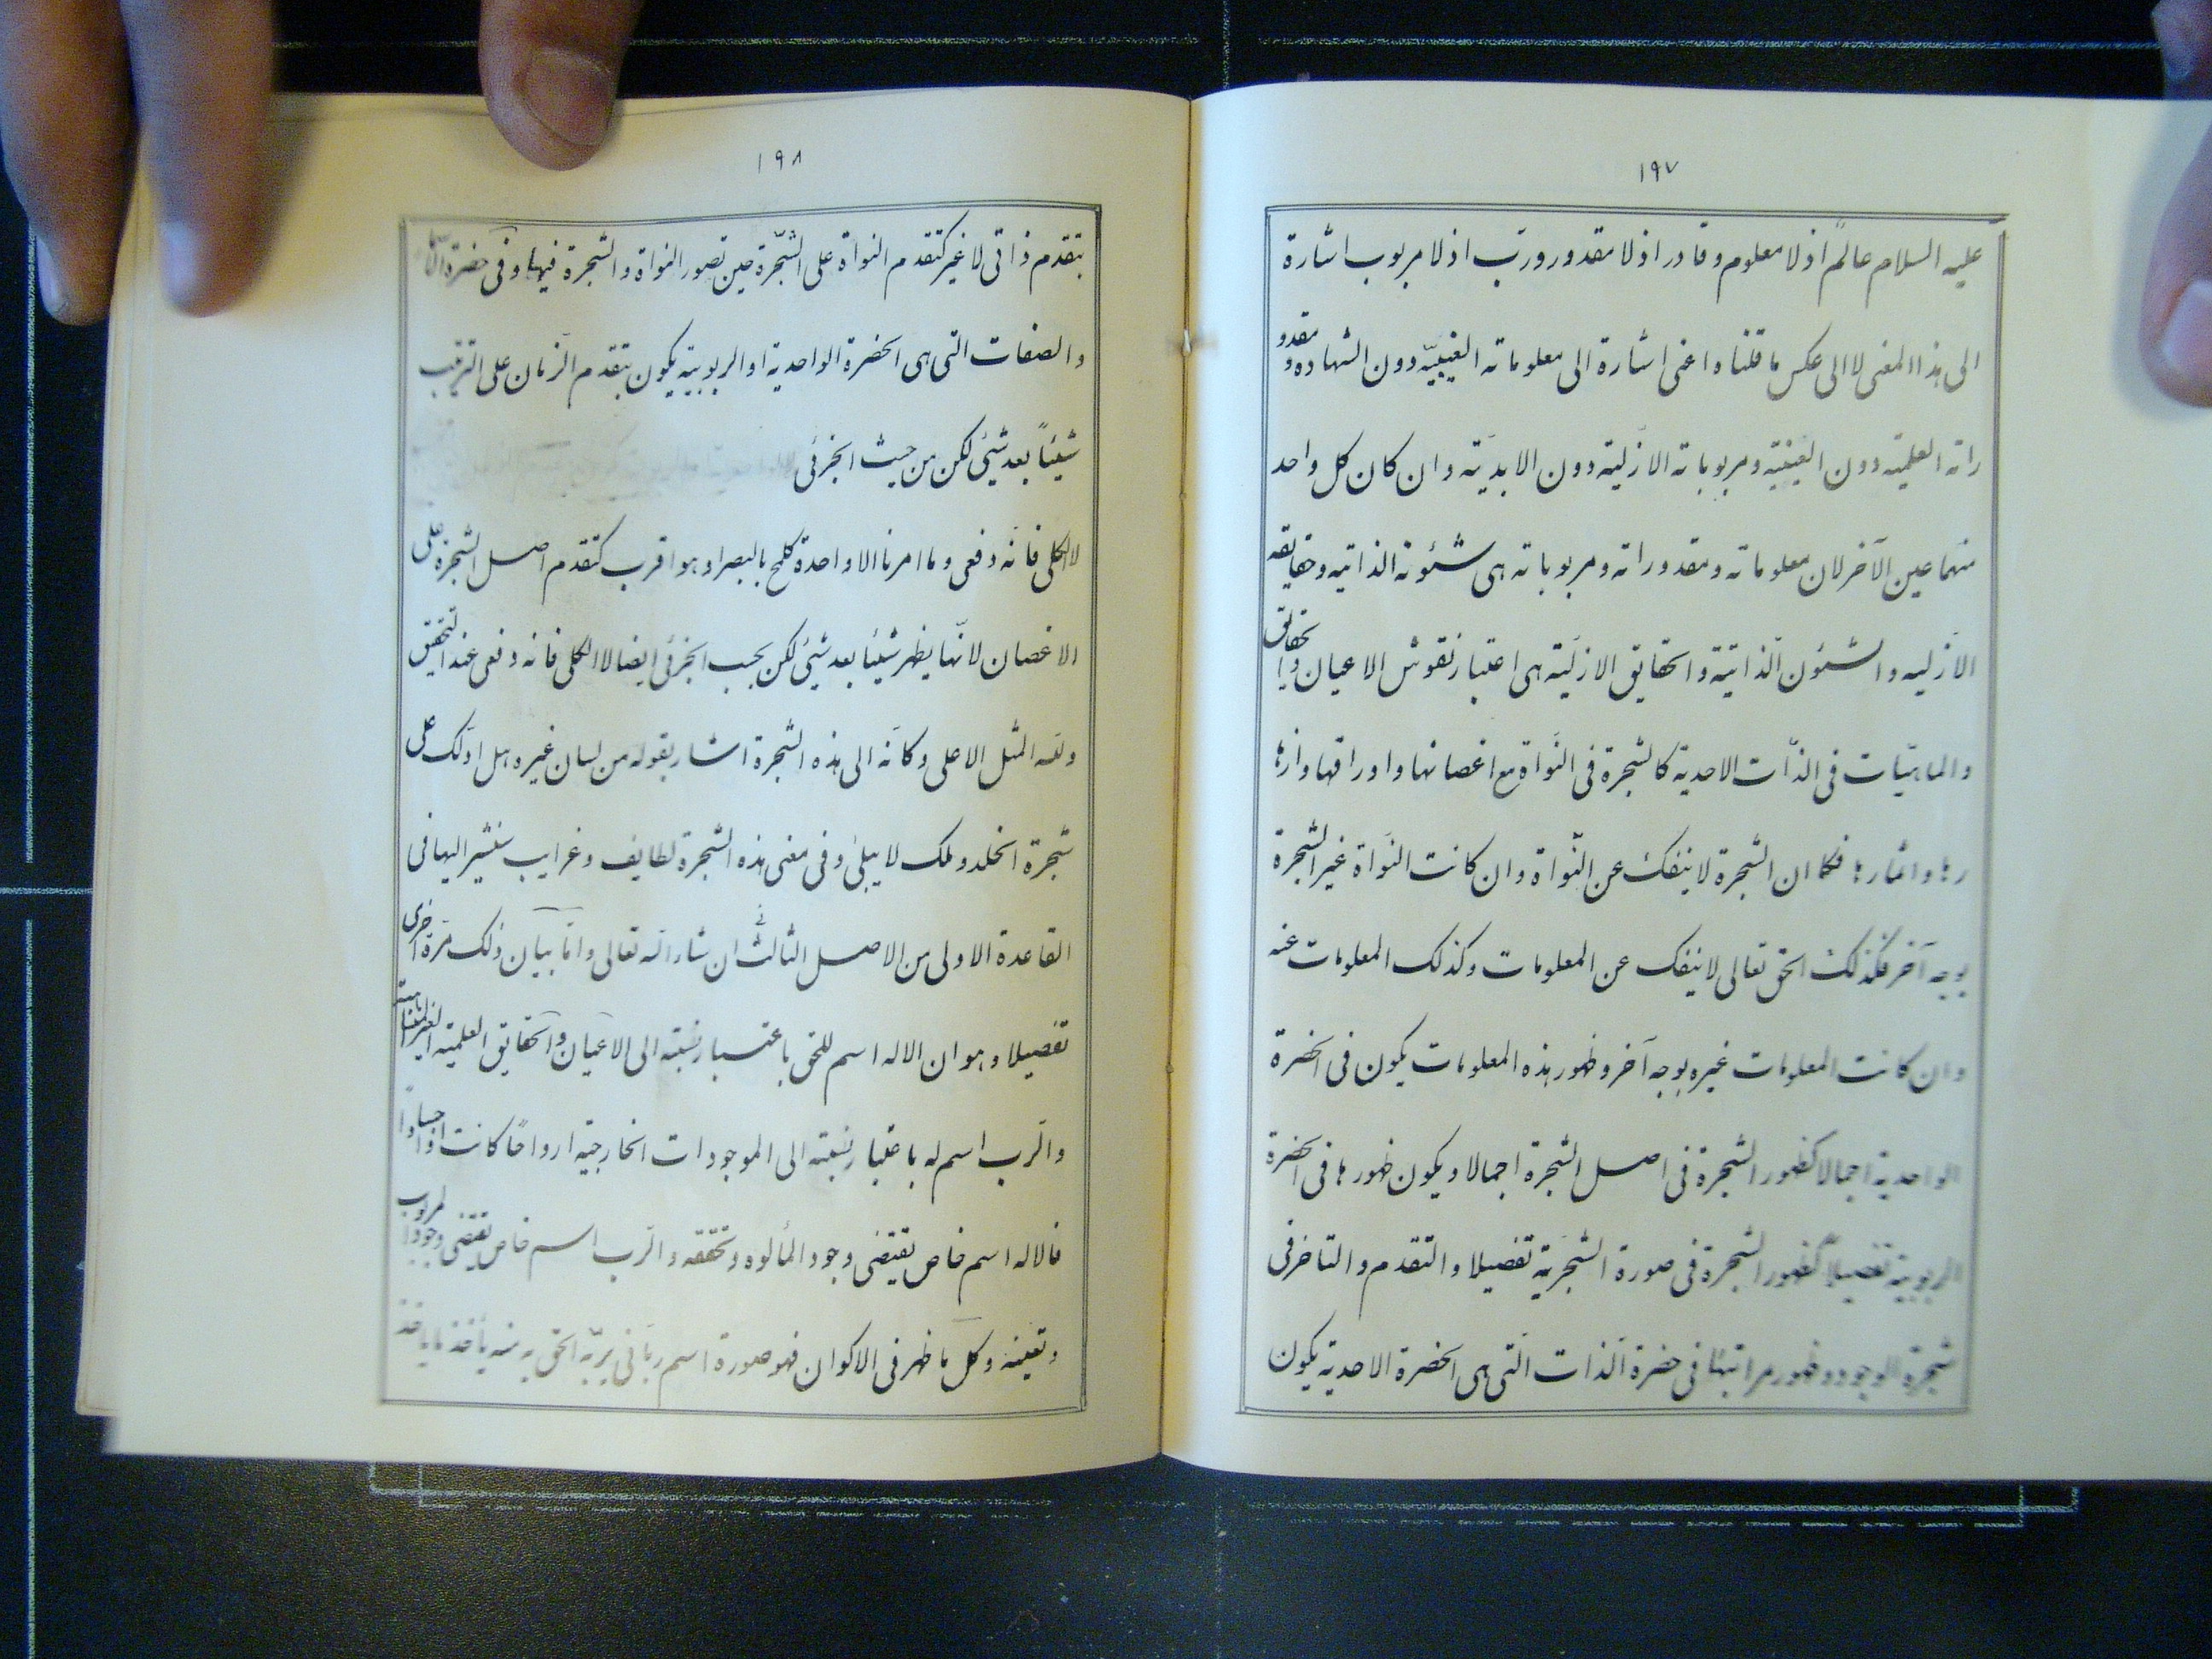 ١٩٧
عليه السلام عالم اذ لا معلوم و قادر اذ لا مقدور و رب اذ لا مربوب اشارة
الى هذا المعنى لا الى عكس ما قلنا و اعنى اشارة الى معلوماته الغيبيّة دون الشهاده و مقدو
راته العلميّة دون العينيّه و مربوباته الازليّة دون الابديّة و ان كان كل واحد
منهما عين الآخر لان معلوماته و مقدوراته و مربوباته هى شئونه الذاتيه و حقايقه
الازليه و الشئون الذاتيّة و الحقايق الازليّة هى اعتبار نقوش الاعيان و الحقايق
و الماهيّات فى الذّات الاحدية كالشجرة فى النّواة مع اغصانها و اوراقها و ازها
رها و اثمارها فكما ان الشجرة لا ينفك عن النّواة و ان كانت النّواة غير الشجرة
بوجه آخر فكذلك الحق تعالى لا ينفك عن المعلومات و كذلك المعلومات عنه
و ان كانت المعلومات غيره بوجه آخر و ظهور هذه المعلومات يكون فى الحضرة
الواحدية اجمالا كظهور الشجرة فى اصل الشجرة اجمالا و يكون ظهورها فى الحضرة
الربوبية تفصيلاً كظهور الشجرة فى صورة الشجريّة تفصيلا و التقدم و التاخر فى
شجرة الوجود و ظهور مراتبها فى حضرة الذات الّتى هى الحضرة الاحدية يكون
١٩٨
بتقدم ذاتى لا غير كتقدم النواة على الشجّرة حين تصور النواة و الشجرة فيها و فى حضرة
و الصفات التى هى الحضرة الواحدية او الربوبية يكون بتقدم الزمان على الترتيب
شيئاً بعد شيئى لكن من حيث الجزئى
لا الكلى فانه دفعى و ما امرنا الا واحدة كلمح بالبصر او هو اقرب كتقدم اصل الشجرة على
الاغصان لانّها يظهر شيئا بعد شيئى لكن بحسب الجزئى ايضا لا الكلى فانه دفعى عند التحقيق
و لله المثل الاعلى و كانه الى هذه الشجرة اشار بقوله من لسان غيره هل ادلك على
شجرة الخلد و ملك لا يبلى و فى معنى هذه الشجرة لطايف و غرايب سنشير اليها فى
القاعدة الاولى من الاصل الثالث ان شاء الله تعالى و امّا بيان ذلك مرّة اخرى
تفصيلا و هو ان الاله اسم للحق باعتبار نسبته الى الاعيان و الحقايق العلميّة الغير المتناهية
و الرب اسم له باعتبار نسبته الى الموجودات الخارجيّة ارواحا كانت او اجسادا
فالاله اسم خاص يقتضى وجود المألوه و تحققه و الرب اسم خاص يقتضى وجود المربوب
و تعينه و كل ما ظهر فى الاكوان فهو صورة اسم ربانى يربّه الحق به منه يأخذ